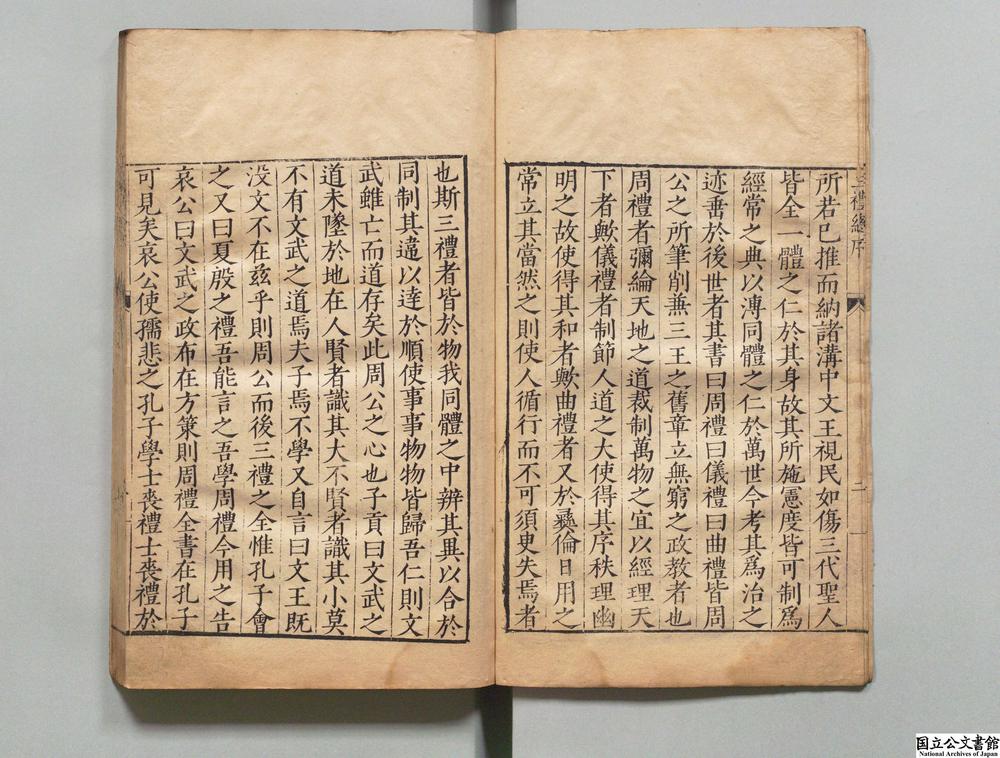 三禮總序
二
所若已推而納諸溝中文王視民如傷三代聖人
皆全一體之仁於其身故其所施憲度皆可制爲
經常之典以溥同體之仁於萬世今考其爲治之
迹垂於後世者其書曰周禮曰儀禮曰曲禮皆周
公之所筆削兼三王之舊章立無窮之政教者也
周禮者彌綸天地之道裁制萬物之宜以經理天
下者歟儀禮者制節人道之大使得其序秩理幽
明之故使得其和者歟曲禮者又於彝倫日用之
常立其當然之則使人循行而不可須臾失焉者
也斯三禮者皆於物我同體之中辨其異以合於
同制其違以達於順使事事物物皆歸吾仁則文
武雖亡而道存矣此周公之心也子貢曰文武之
道未墜於地在人賢者識其大不賢者識其小莫
不有文武之道焉夫子焉不學又自言曰文王既
没文不在茲乎則周公而後三禮之全惟孔子會
之又曰夏殷之禮吾能言之吾學周禮今用之告
哀公曰文武之政布在方策則周禮全書在孔子
可見矣哀公使孺悲之孔子學士喪禮士喪禮於
国立公文書館
National Archives of Japan